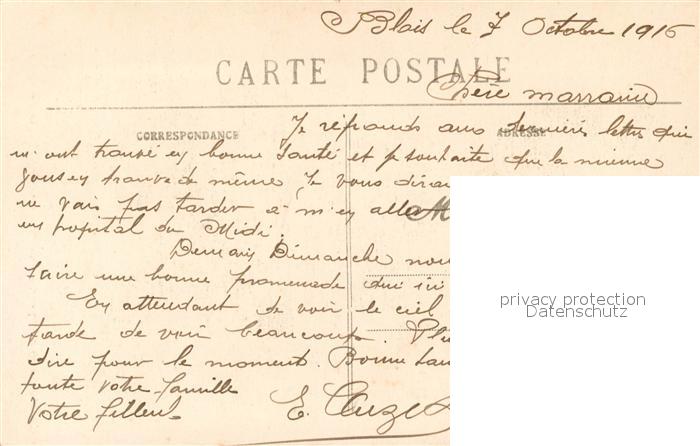 Blois le 7 Octobre 1916
CARTE POSTALE
Chère marraine
CORRESPONDANCE
ADRESSE
Je réponds aux dernières lettres qui
m'ont trouvé en bonne santé et je souhaite que la mienne
vous en trouve de même. Je vous dirai
ne vais pas tarder à m'en aller
en hopital du Midi.
Demain Dimanche nous
faire une bonne promenade
En attendant de voir le ciel
tarde de voir beaucoup. Plus
dire pour le moment. Bonne
toute votre famille
Votre filleul E.
privacy protection
Datenschutz